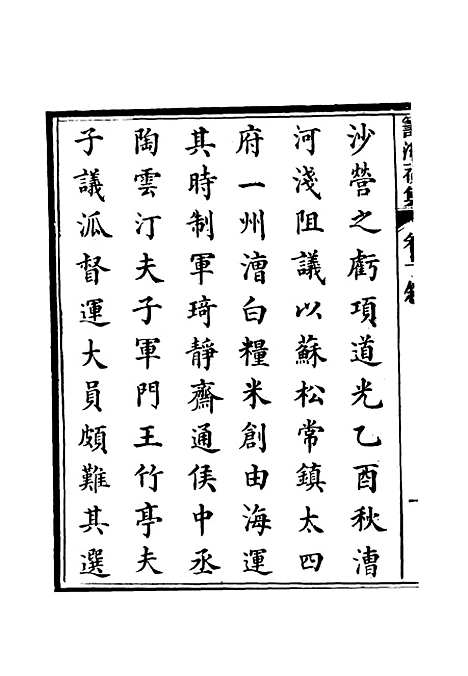 沙營之虧項道光乙酉秋漕
河淺阻議以蘇松常鎮太四
府一州漕白糧米創由海運
其時制軍琦靜齋通侯中丞
陶雲汀夫子軍門王竹亭夫
子議派督運大員頗難其選